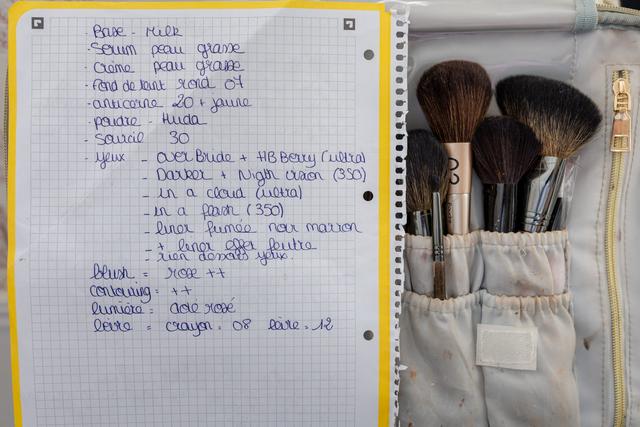 - Base - Milk
- Serum peau grasse
- Crème peau grasse
- Fond de teint rond 07
- anticerne 20 + jaune
- poudre - Huda
- Sourcil 30
- yeux - over Bride + HB Berry (ultra)
- Darker + Night vision (350)
- in a cloud (ultra)
- in a flash (350)
- liner fumée noir marron
- + liner effet feutre
- rien dessous yeux.
blush = rose ++
contouring = ++
lumière = doré rosé
lèvre = crayon = 08 lèvre = 12